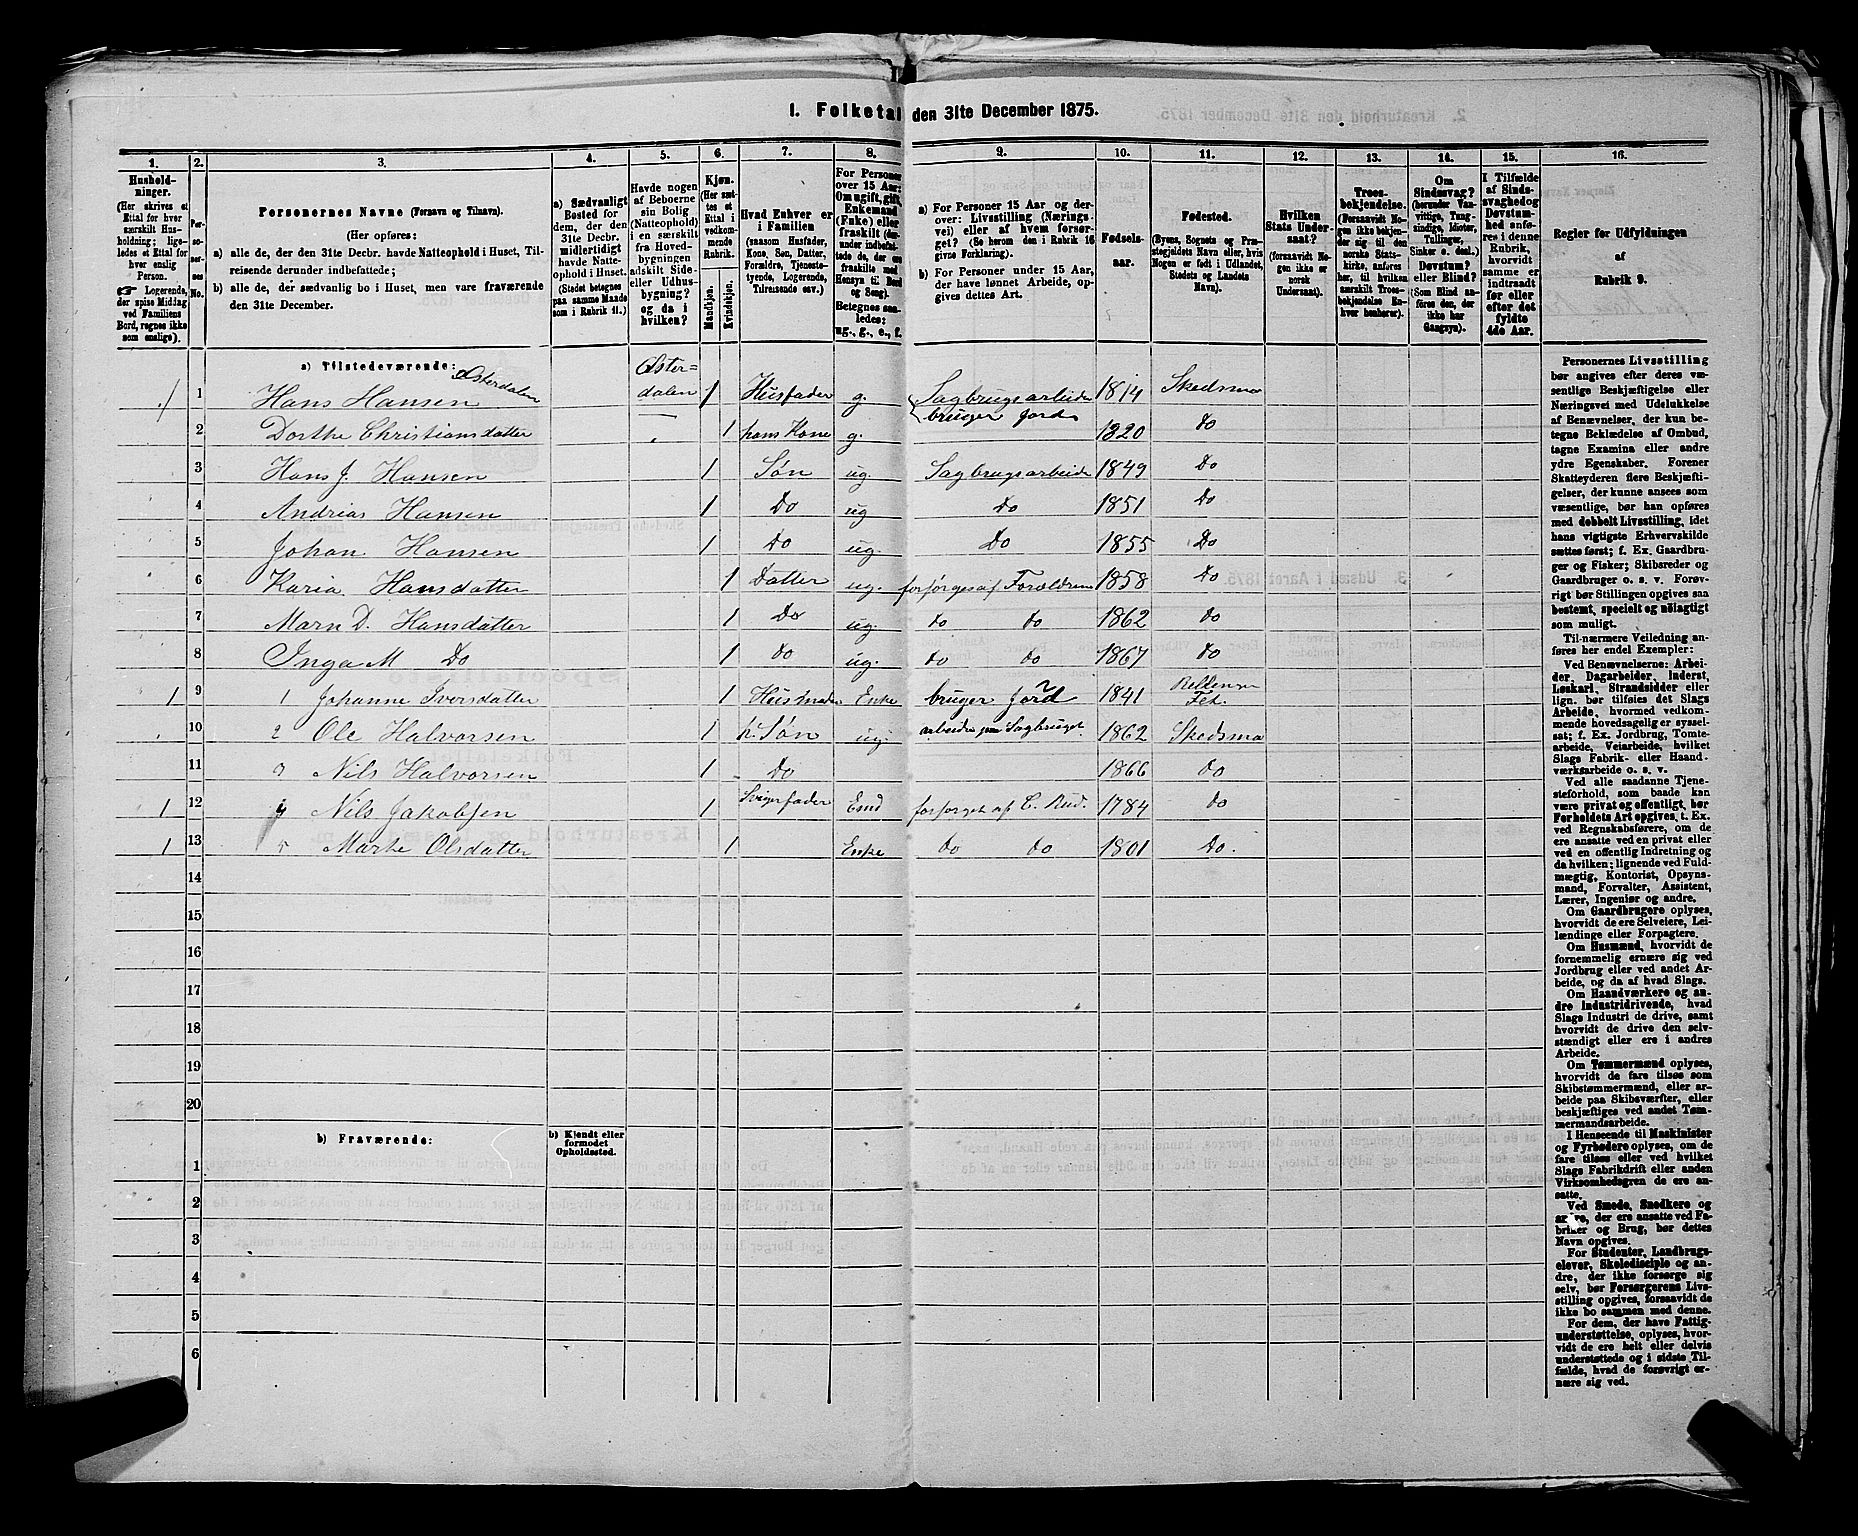 1. Folketal den 31te December 1875.
1.
2.
3.
4.
5.
6.
7.
8.
9.
10.
11.
12.
13.
14.
15.
16.
Husholdninger.
(Her skrives et Ettal for hver særskilt Husholdning; ligeledes et Ettal for hver enslig Person.
Logerende, der spise Middag ved Familiens Bord, regnes ikke som enslige).
Personernes No.
Personernes Navne (Fornavn og Tilnavn).
(Her opføres:
a) alle de, der den 31te Decbr. havde Natteophold i Huset, Tilreisende derunder indbefattede;
b) alle de, der sædvanlig bo i Huset, men vare fraværende den 31te December.
a) Sædvanligt Bosted for dem, der den 31te Decbr. midlertidigt havde Natteophold i Huset. (Stedet betegnes paa samme Maade som i Rubrik 11.)
Havde nogen af Beboerne sin Bolig (Natteophold) i en særskilt fra Hovedbygningen adskilt Side- eller Udhusbygning? og da i hvilken?
Kjøn. (Her sættes et Ettal i vedkommende Rubrik.
Mandkjøn.
Kvindekjøn.
Hvad Enhver er i Familien
(saasom Husfader, Kone, Søn, Datter, Forældre, Tjenestetyende, Logerende, Tilreisende osv.)
For Personer over 15 Aar: Om ugift, gift, Enkemand (Enke) eller fraskilt (derunder indbefattede de, der ere fraskilte med Hensyn til Bord og Seng). Betegnes saaledes: ug., g., e., f.
a) For Personer 15 Aar og derover: Livsstilling (Næringsvei) eller af hvem forsørget? (Se herom den i Rubrik 16 givne Forklaring).
b) For Personer under 15 Aar, der have lønnet Arbeide, opgives dettes Art.
Fødselsaar.
Fødested.
(Byens, Sognets og Præstegjeldets Navn eller, hvis Nogen er født i Udlandet, Stedets og Landets Navn).
Hvilken Stats Undersaat?
(forsaavidt Nogen ikke er norsk Undersaat).
Troesbekjendelse.
(Forsaavidt Nogen ikke bekjender sig til den norske Statskirke, anføres her, til hvilket særskilt Troesbekjendelse Enhver henhører).
Om Sindssvag? (herunder Vanvittige, Tungsindige, Idioter, Tullinger, Sinker o. desl.) Døvstum? eller Blind? (Som Blind anføres den, der ikke har Gangsyn).
I Tilfælde af Sindssvaghed og Døvstumhed anføres i denne Rubrik, hvorvidt samme er indtraadt før eller efter det fyldte 4de Aar.
Regler for Udfyldningen
af
Rubrik 9.
a) Tilstedeværende:
1 1 Hans Hansen Østerdalen Østerdalen 1 Husfader g. Sagbrugsarbeide bruger Jord 1814 Skedsmo
2 Dorthe Christiansdatter 1 hans Kone g. 1820 Do
3 Hans J. Hansen 1 Søn ug. Sagbrugsarbeide 1849 Do
4 Andrias Hansen 1 Do ug Do 1851 Do
5 Johan Hansen 1 Do ug. Do 1855 Do
6 Karia Hansdatter 1 Datter ug. forsørges af Forældrene 1858 Do
7 Marn D. Hansdatter 1 Do ug. do do 1862 do
8 Inga M Do 1 do ug. do do 1867 do
1 9 1 Johanne Iversdatter 1 Husmoder Enke bruger Jord 1841 Fet.
10 2 Ole Halvorsen 1 h. Søn ug. arbeider paa Sagbruget. 1862 Skedsmo
11 3 Nils Halvorsen 1 Do 1866 do
1 12 4 Nils Jakobsen 1 Svigerfader Emd forsørget af C. Rud. 1784 do
1 13 5 Marte Olsdatter 1 Enke do do 1801 Do.
14
15
16
17
18
19
20
b) Fraværende:
b) Kjendt eller formodet Opholdssted.
1
2
3
4
5
6
Personernes Livsstilling
bør angives efter deres væ-
sentlige Beskjæftigelse eller
Næringsvei med Udelukkelse
af Benævnelser, der kun be-
tegne Beklædelse af Ombud,
tagne Examina eller andre
ydre Egenskaber. Forener
Skatteyderen flere Beskjæfti-
gelser, der kunne ansees som
væsentlige, bør han opføres
med dobbelt Livsstilling, idet
hans vigtigste Erhvervskilde
sættes først; f. Ex. Gaardbru-
ger og Fisker; Skibsreder og
Gaardbruger o. s. v. Forøv-
rigt bør Stillingen opgives saa
bestemt, specielt og nøiagtigt
som muligt.
Til nærmere Veiledning an-
føres her endel Exempler:
Ved Benævnelserne: Arbei-
der, Dagarbeider, Inderst,
Løskarl, Strandsidder eller
lign. bør tilføies det Slags
Arbeide, hvormed vedkom-
mende hovedsagelig er syssel-
sat; f. Ex. Jordbrug, Tomte-
arbeide, Veiarbeide, hvilket
Slags Fabrik- eller Haand-
værksarbeide o. s. v.
Ved alle saadanne Tjene-
steforhold, som baade kan
være privat og offentligt, bør
Forholdets Art opgives, t. Ex.
ved Regnskabsførere, om de
ere ansatte ved en privat eller
ved en offentlig Indretning og
da hvilken; lignende ved Fuld-
mægtig, Kontorist, Opsyns-
mand, Forvalter, Assistent,
Lærer, Ingeniør og andre.
Om Gaardbrugere oplyses,
hvorvidt de ere Selveiere, Lei-
lændinge eller Forpagtere.
Om Husmænd, hvorvidt de
fornemmelig ernære sig ved
Jordbrug eller ved andet Ar-
beide, og da af hvad Slags.
Om Haandværkere og an-
dre Industridrivende, hvad
Slags Industri de drive, samt
hvorvidt de drive den selv-
stændigt eller ere i andres
Arbeide.
Om Tømmermænd oplyses,
hvorvidt de fare tilsøs som
Skibstømmermænd, eller ar-
beide paa Skibsværfter, eller
beskjæftiges ved andet Tøm-
mermandsarbeide.
I Henseende til Maskinister
og Fyrbødere oplyses, om de
fare tilsøs eller ved hvilket
Slags Fabrikdrift eller anden
Virksomhedsgren de ere an-
satte.
Ved Smede, Snedkere og
andre, der ere ansatte ved Fa-
briker og Brug, bør dettes
Navn opgives.
For Studenter, Landbrugs-
elever, Skoledisciple og an-
dre, der ikke forsørge sig
selv, bør Forsørgerens Livs-
stilling opgives, forsaavidt de
ikke bo sammen med denne.
For dem, der have Fattig-
understøttelse, oplyses, hvor-
vidt de ere helt eller delvis
understøttede og i sidste Til-
fælde, hvad de forøvrigt er-
nære sig ved.